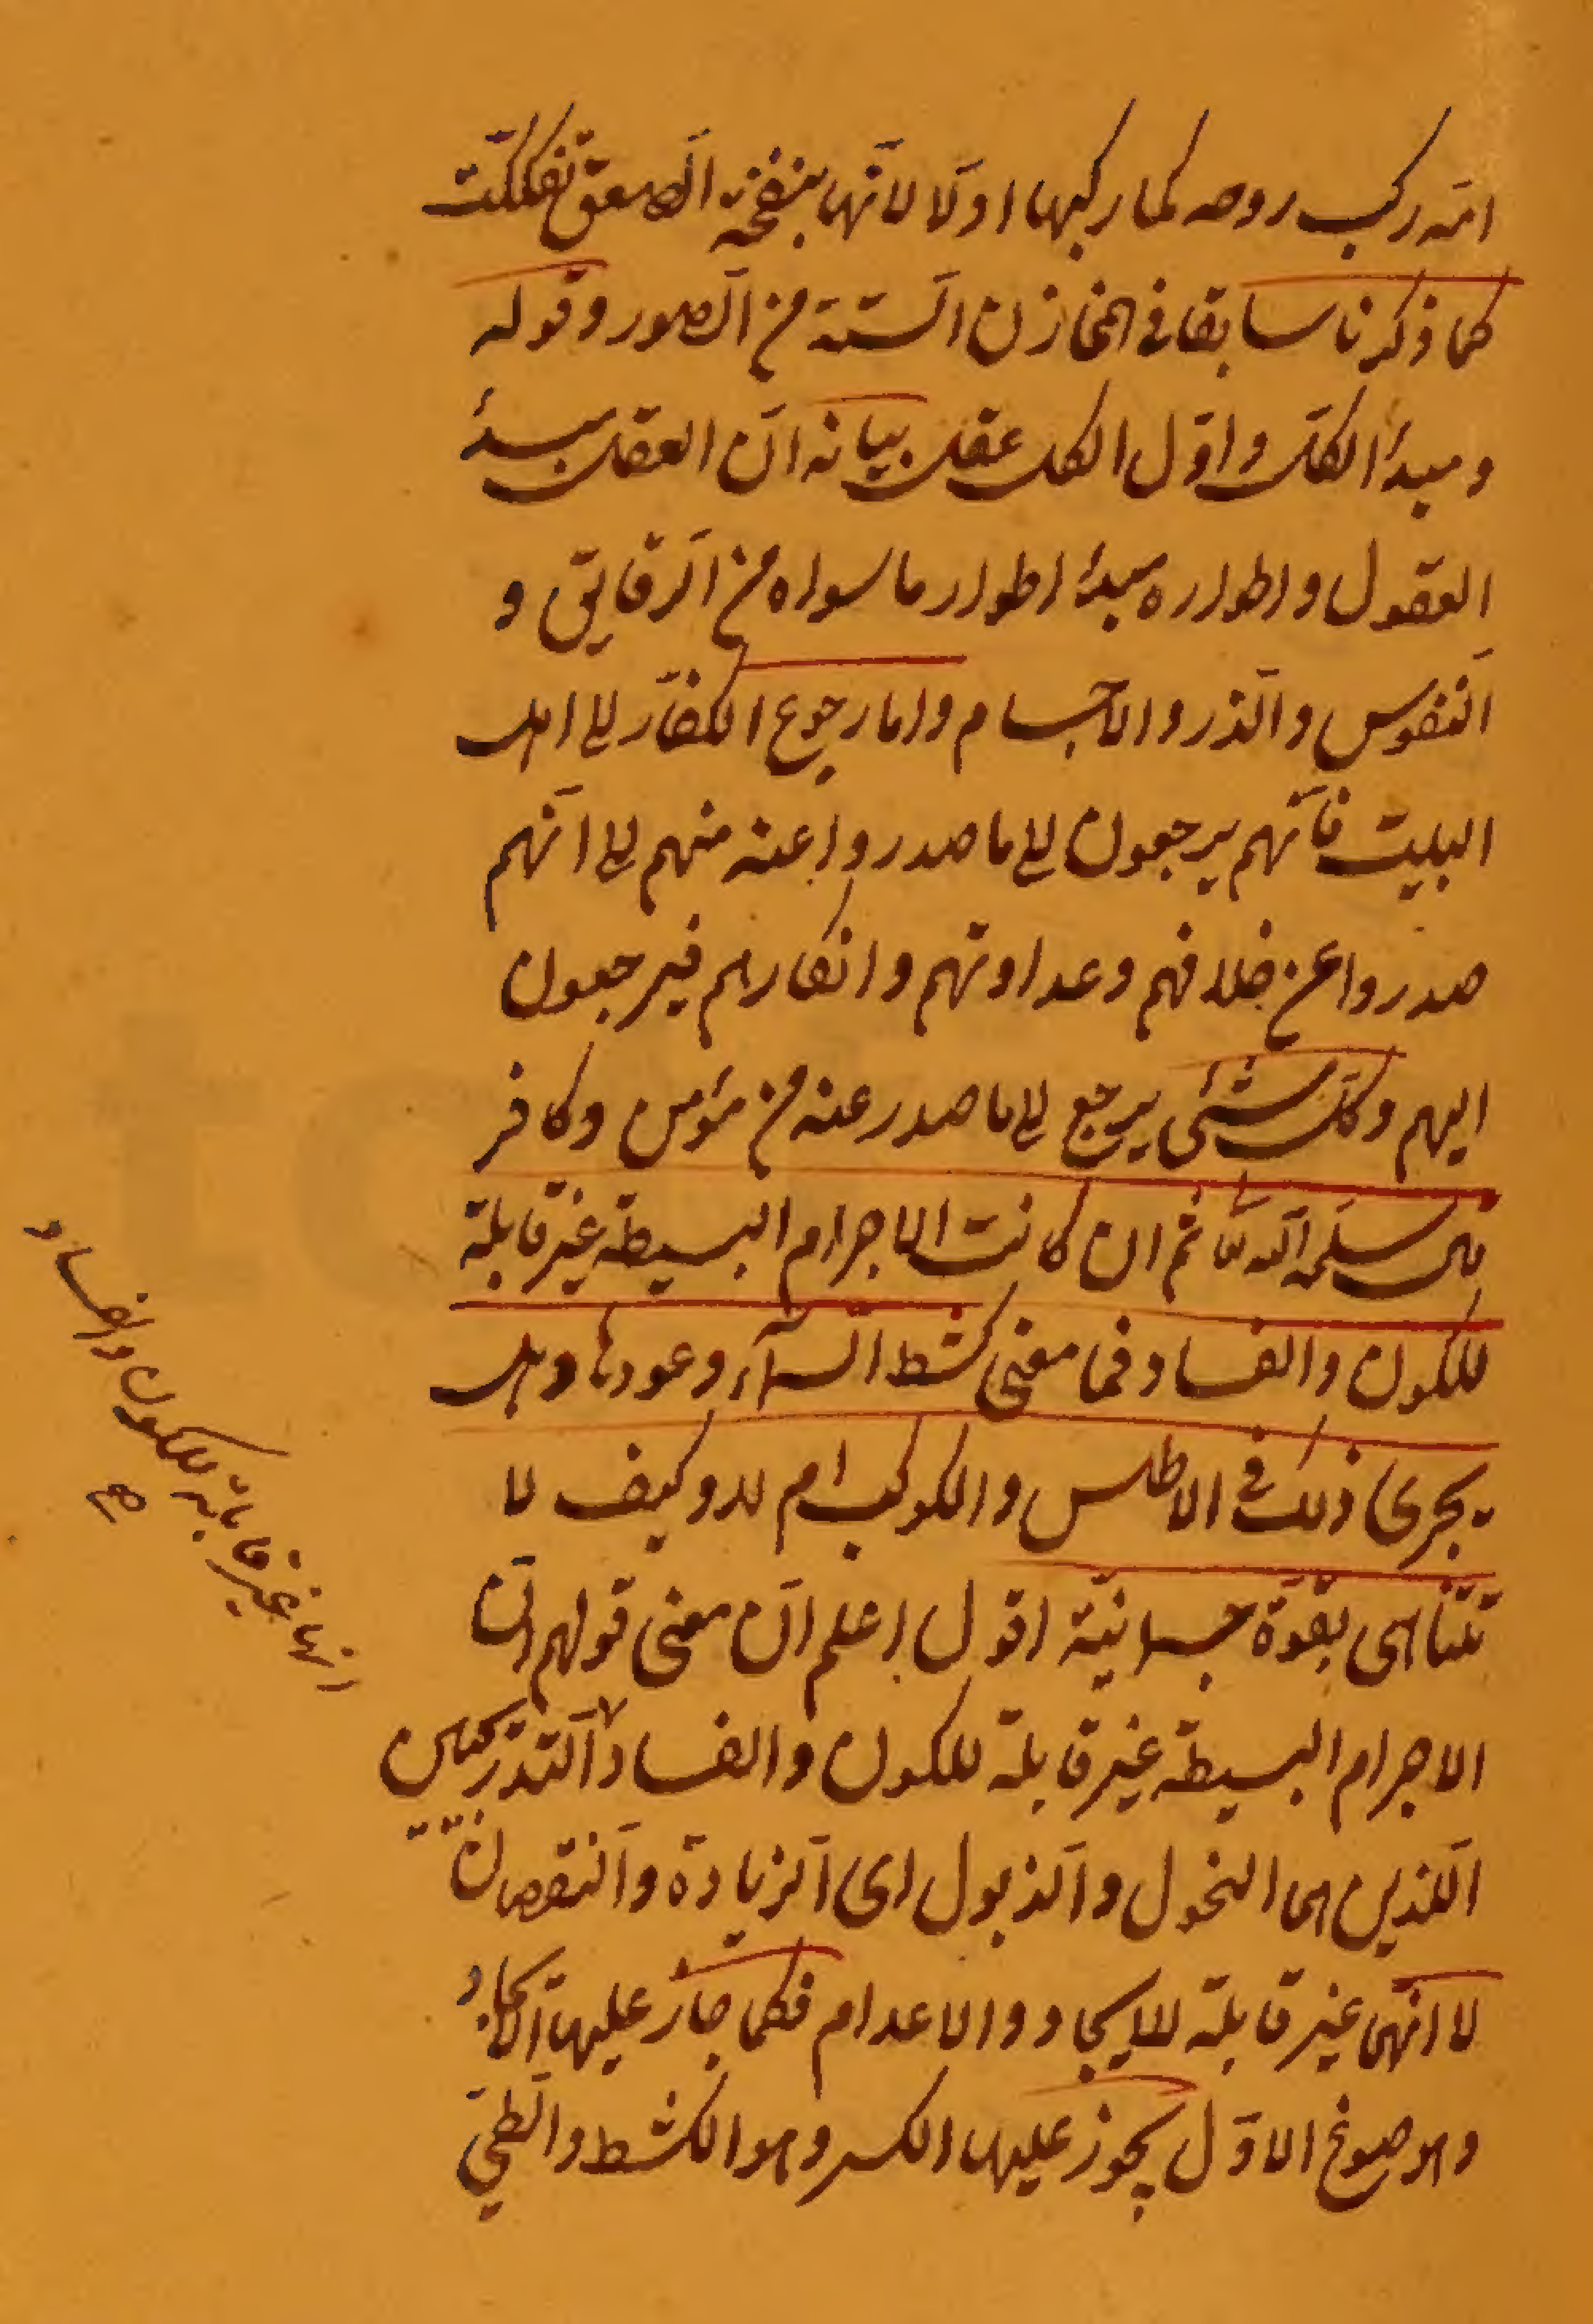 انه ركب روحه كما ركبها اولا لانها بنفخة الصعق تفككت
كما ذكرنا سابقا فى المخازن الستة من الصور وقوله
ومبدأ الكل واول الكل عقل بيانه ان العقل مبدأ
العقول واطواره مبدأ اطوار ما سواه من الرقايق و
النفوس والذر والاجسام واما رجوع الكفار الى اهل
البيت فانهم يرجعون الى ما صدروا عنه منهم الى انهم
صدروا عن خلافهم وعداوتهم وانكارهم فيرجعون
اليهم وكل شئ يرجع الى ما صدر عنه من مؤمن وكافر
سلمه الله تعا ثم ان كانت الاجرام البسيطة غير قابلة
للكون والفساد فما معنى كشط السماء وعودها وهل
يجرى ذلك فى الاطلس والكوكب ام لا وكيف لا
تتناهى بقوة جسمانية اقول اعلم ان معنى قولهم ان
الاجرام البسيطة غير قابلة للكون والفساد التدريجيين
اللذين هما النحول والذبول اى الزيادة والنقصان
لا انها غير قابلة للايجاد والاعدام فكما جاز عليها الايجاد
وهو صوغ الاول يجوز عليها الكسر وهو الكشط والطى
انها غير قابلة للكون والفساد